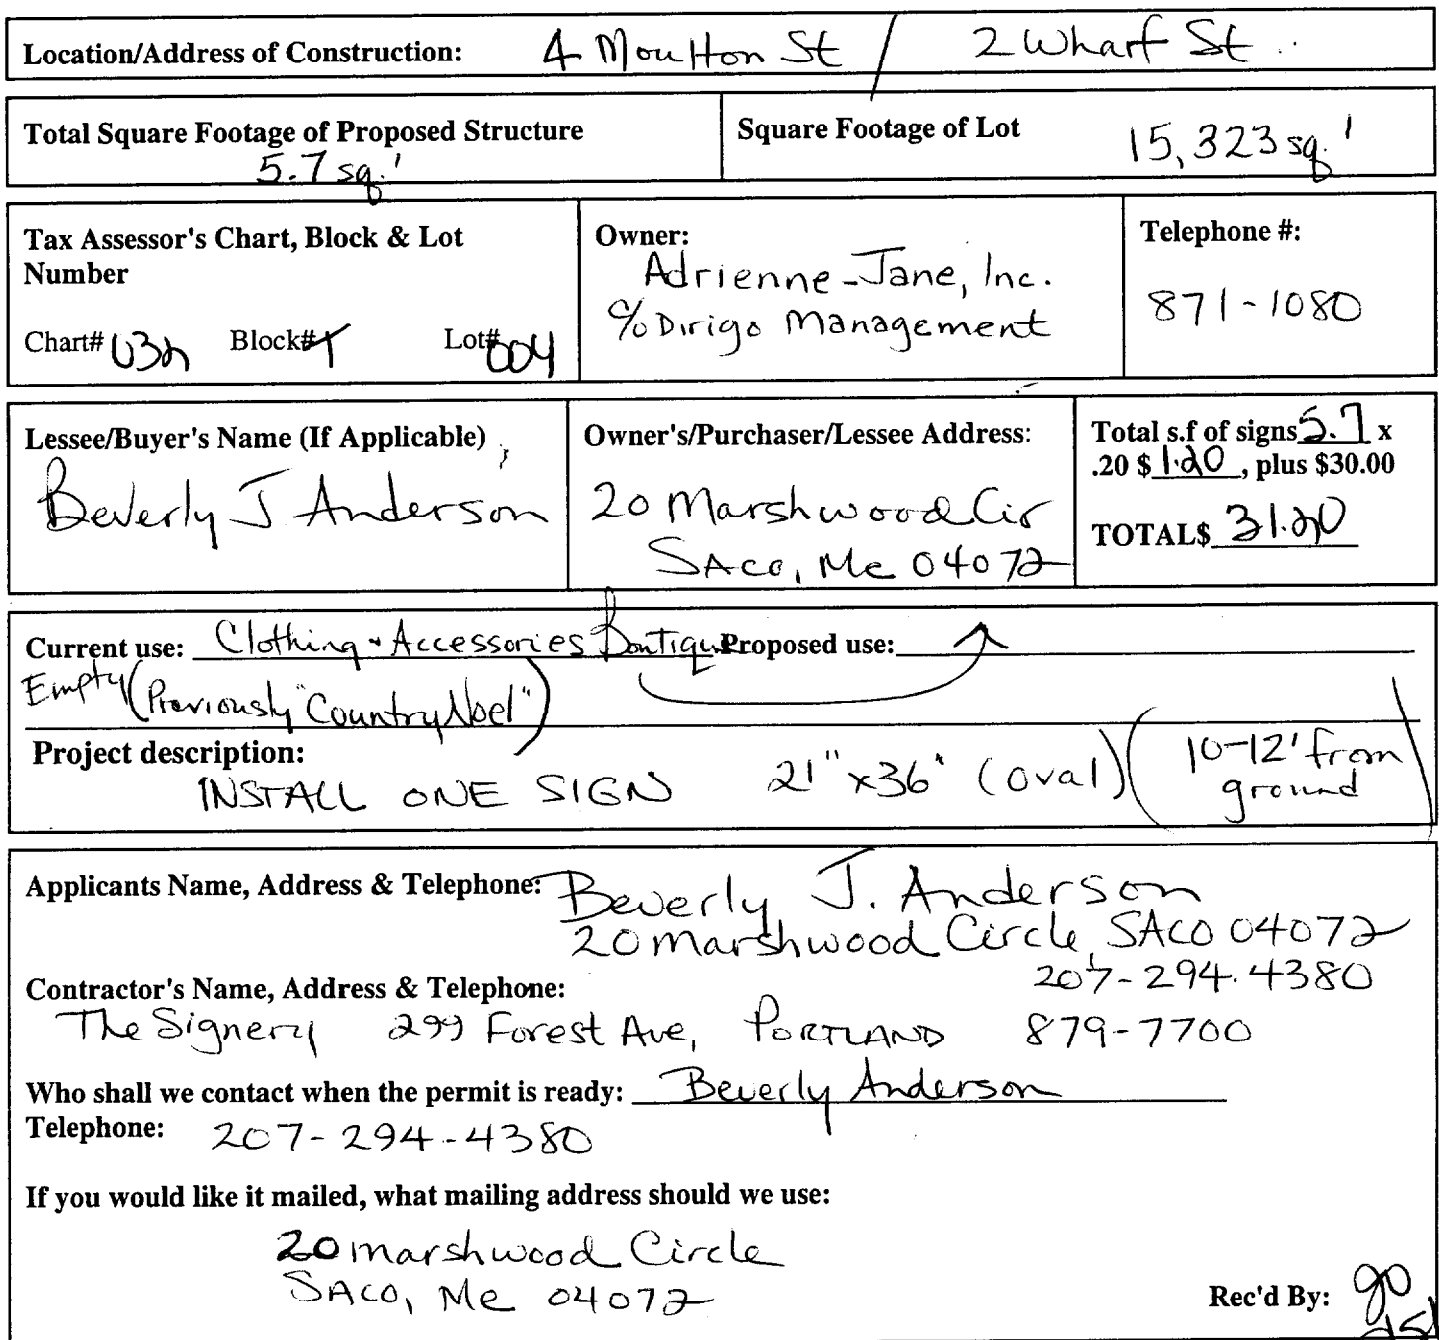 Location/Address of Construction: 4 Moulton St / 2 Wharf St.
Total Square Footage of Proposed Structure
5.7 sq.'
Square Footage of Lot
15,323 sq.'
Tax Assessor's Chart, Block & Lot
Number
Chart# 032 Block# Lot# 004
Owner:
Adrienne-Jane, Inc.
c/o Dirigo Management
Telephone #:
871-1080
Lessee/Buyer's Name (If Applicable)
Beverly J Anderson
Owner's/Purchaser/Lessee Address:
20 Marshwood Cir
SACO, Me 04072
Total s.f of signs 5.7 x
.20 $ 1.20, plus $30.00
TOTAL$ 31.20
Current use: Clothing + Accessories Boutique Proposed use:
Empty (Previously "Country Noel")
Project description:
INSTALL ONE SIGN 21" x 36" (oval) (10-12' from
ground
Applicants Name, Address & Telephone: Beverly J. Anderson
20 marshwood Circle, SACO 04072
207-294.4380
Contractor's Name, Address & Telephone:
The Signery 299 Forest Ave, PORTLAND 879-7700
Who shall we contact when the permit is ready: Beverly Anderson
Telephone: 207-294-4380
If you would like it mailed, what mailing address should we use:
20 marshwood Circle
SACO, Me 04072
Rec'd By: